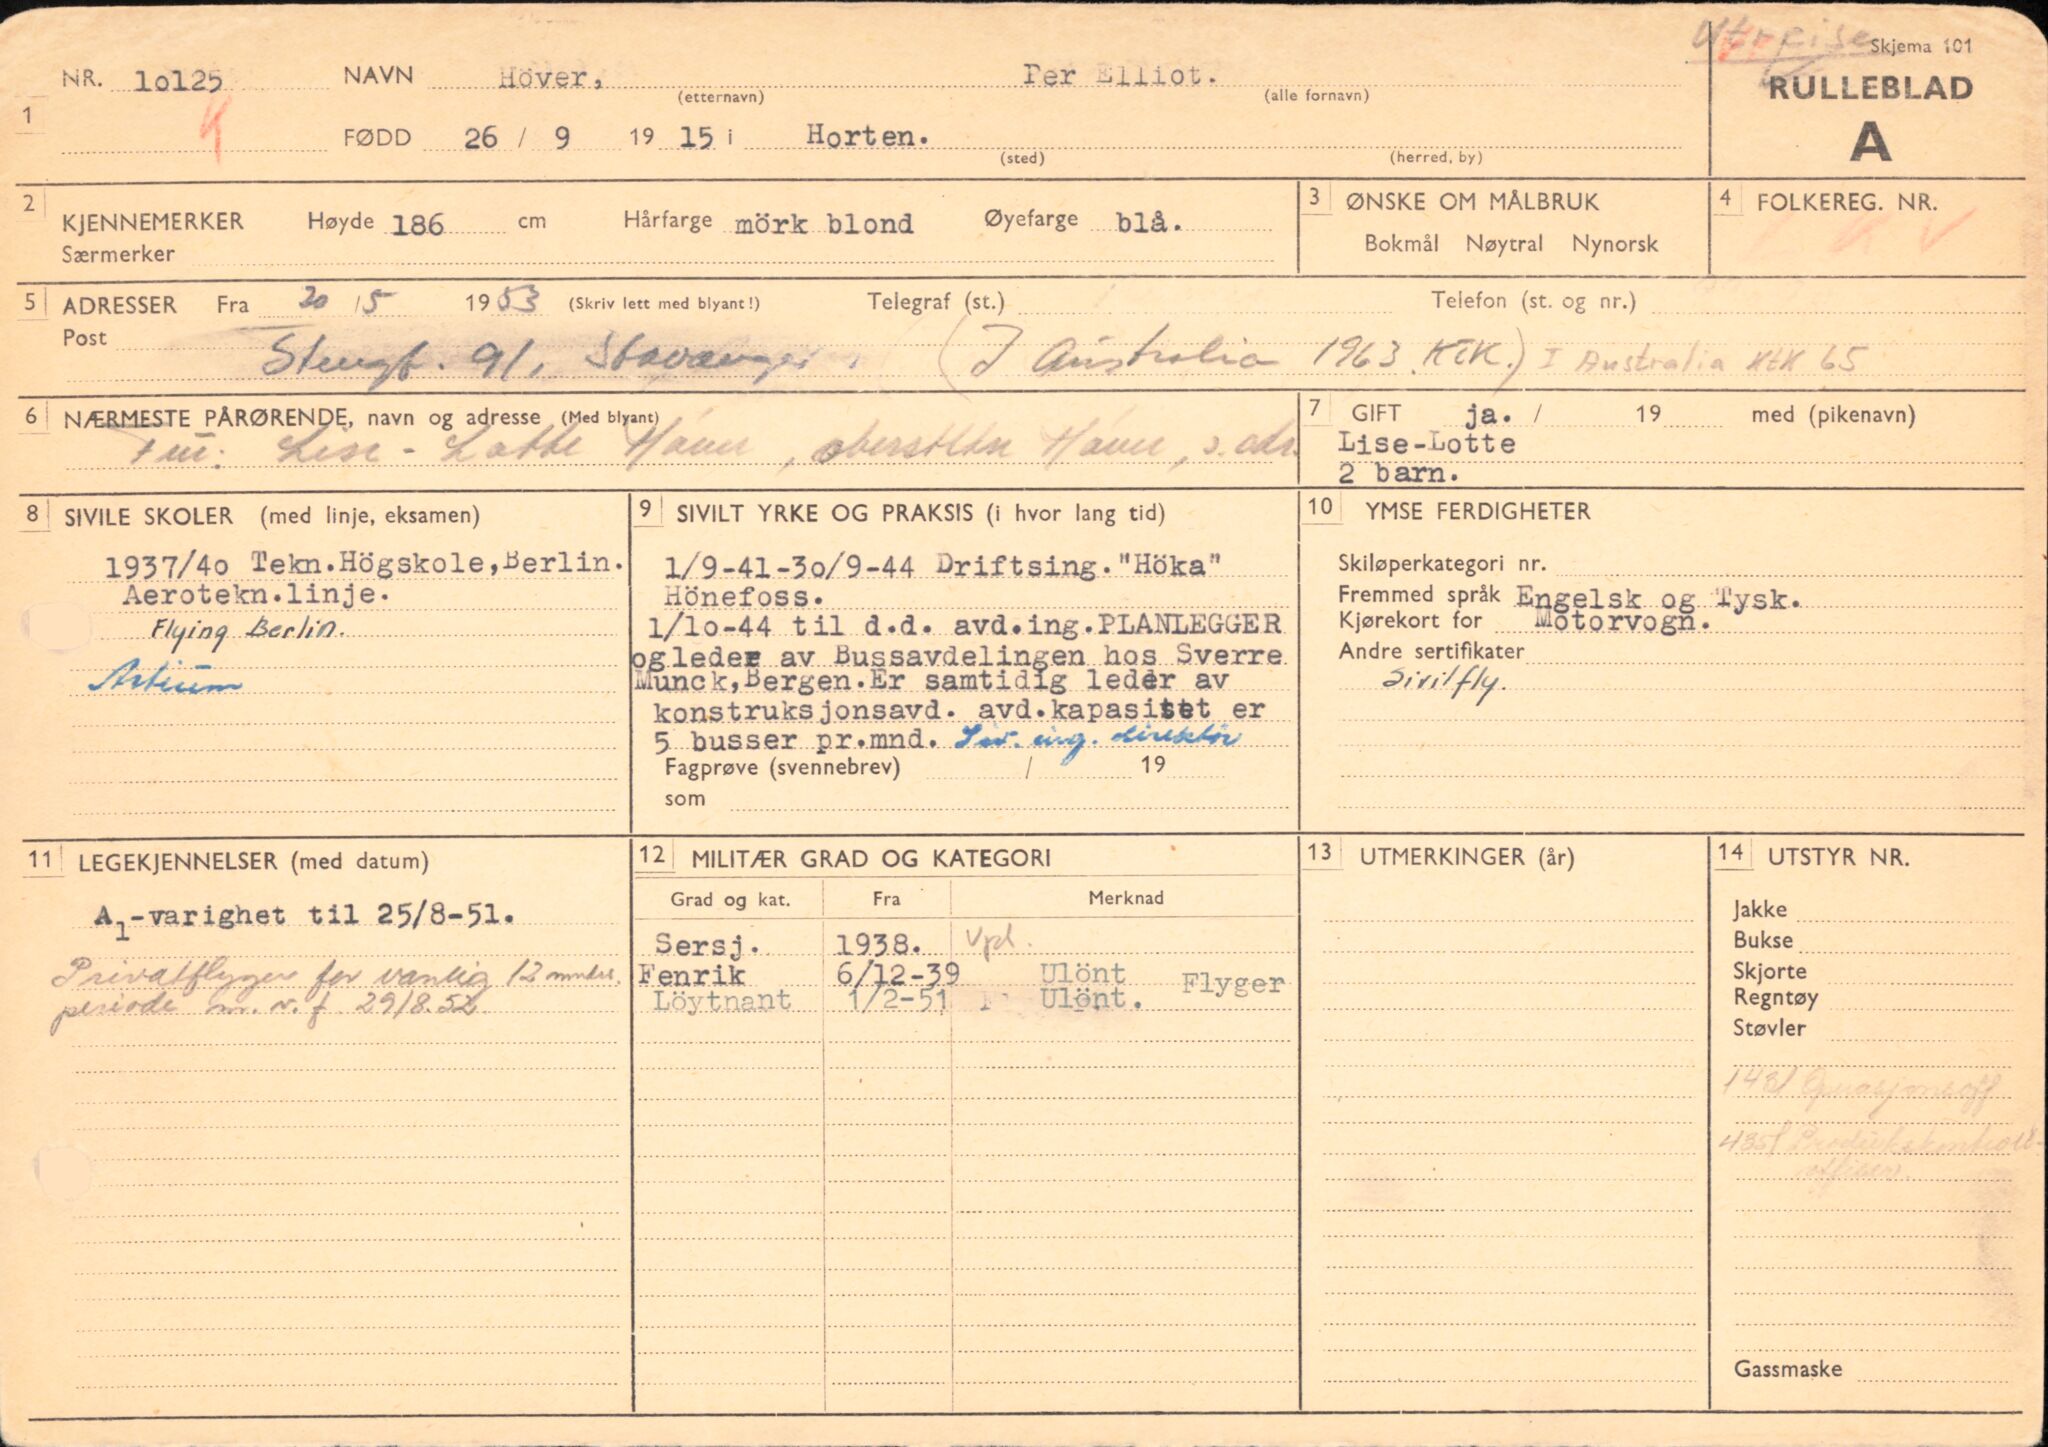 Utreise
Skjema 101
NR. 10125 NAVN Höver, Per Elliot.
(etternavn) (alle fornavn)
RULLEBLAD
A
1
K
FØDD 26 / 9 19 15 i Horten.
(sted) (herred, by)
2 KJENNEMERKER Høyde 186 cm Hårfarge mörk blond Øyefarge blå.
Særmerker
3 ØNSKE OM MÅLBRUK
Bokmål Nøytral Nynorsk
4 FOLKEREG. NR.
5 ADRESSER Fra 20/5 1953 (Skriv lett med blyant!) Telegraf (st.) Telefon (st. og nr.)
Post
Stengt. 91, Stavanger. (I Australia 1963 KTK.) I Australia KTK 65
6 NÆRMESTE PÅRØRENDE, navn og adresse (Med blyant)
Lise-Lotte Höver, Höver, s. adr.
7 GIFT ja. / 19 med (pikenavn)
Lise-Lotte
2 barn.
8 SIVILE SKOLER (med linje, eksamen)
1937/40 Tekn.Högskole,Berlin.
Aerotekn.linje.
Flying Berlin.
Artium
9 SIVILT YRKE OG PRAKSIS (i hvor lang tid)
1/9-41-30/9-44 Driftsing."Höka"
Hönefoss.
1/10-44 til d.d. avd.ing.PLANLEGGER
og leder av Bussavdelingen hos Sverre
Munck,Bergen.Er samtidig leder av
konstruksjonsavd. avd.kapasitet er
5 busser pr.mnd. Siv. ing. direktör
Fagprøve (svennebrev) / 19
som
10 YMSE FERDIGHETER
Skiløperkategori nr.
Fremmed språk Engelsk og Tysk.
Kjørekort for Motorvogn.
Andre sertifikater
Sivilfly.
11 LEGEKJENNELSER (med datum)
A1-varighet til 25/8-51.
Privatflyger for vanlig 12 mndrs.
periode m. v. f 29/8.52
12 MILITÆR GRAD OG KATEGORI
Grad og kat. Fra Merknad
Sersj. 1938. Vpl.
Fenrik 6/12-39 Ulönt
Flyger
Löytnant 1/2-51 Ulönt.
13 UTMERKINGER (år)
14 UTSTYR NR.
Jakke
Bukse
Skjorte
Regntøy
Støvler
1431
4351 Produkskontroll-
offiser.
Gassmaske